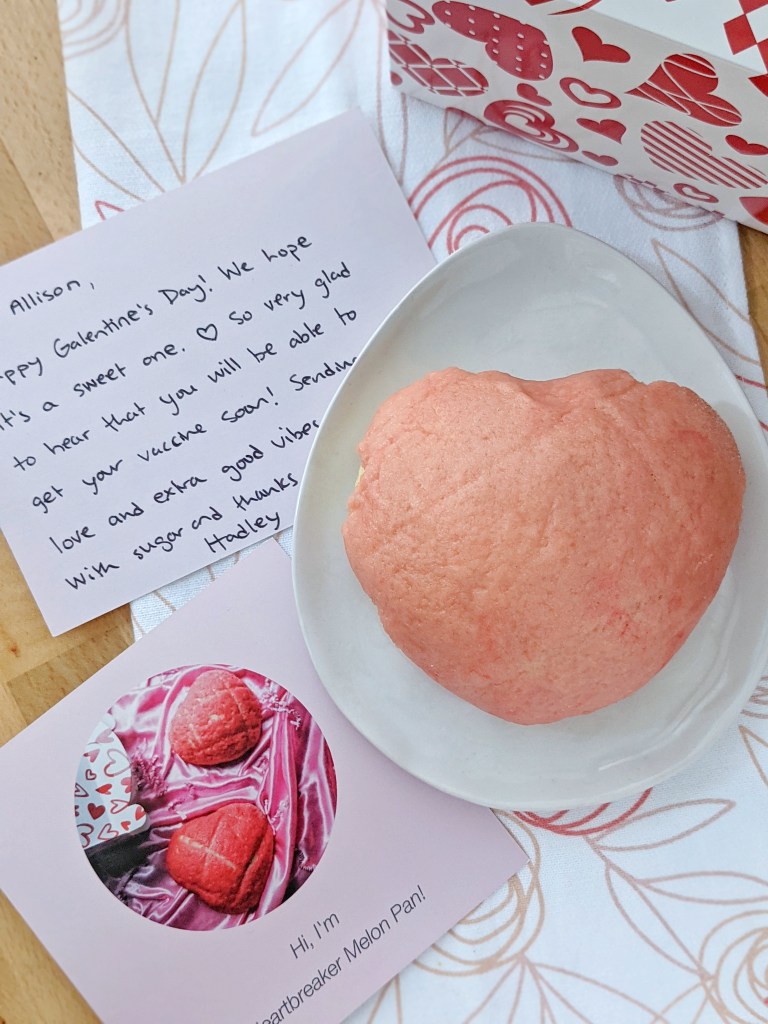 Allison,
ppy Galentine's Day! We hope
it's a sweet one. ♡ So very glad
to hear that you will be able to
get your vaccine soon! Sending
love and extra good vibes
with sugar and thanks
Hadley
Hi, I'm
eartbreaker Melon Pan!